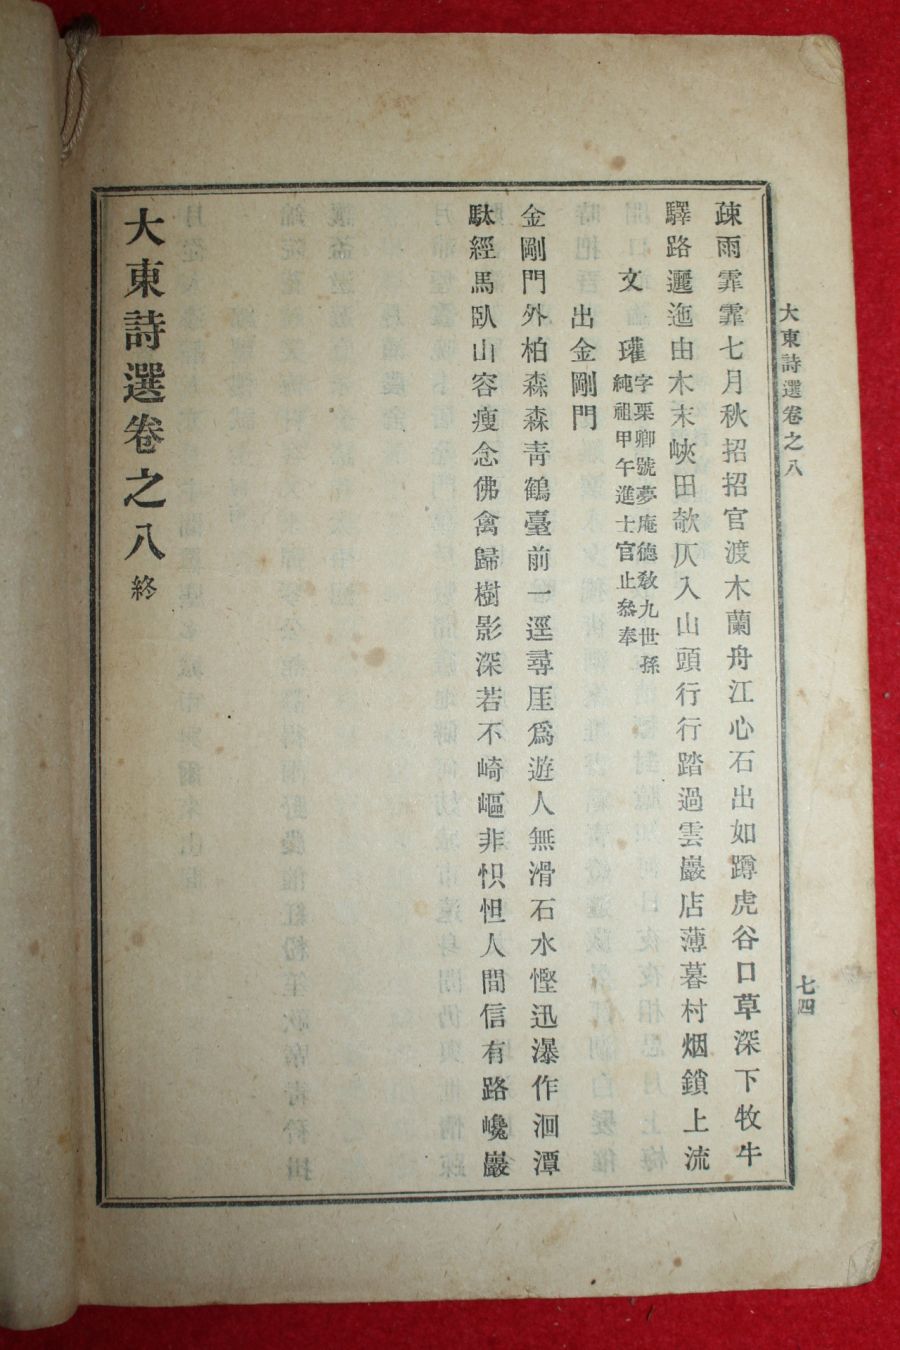 大東詩選卷之八
七四
疎雨霏霏七月秋招招官渡木蘭舟江心石出如蹲虎谷口草深下牧牛
驛路邐迤由木末峽田欹仄入山頭行行踏過雲巖店薄暮村烟鎖上流
文 瓘 字栗卿號夢庵德敎九世孫
純祖甲午進士官止叅奉
出金剛門
金剛門外柏森森靑鶴臺前一逕尋厓爲遊人無滑石水慳迅瀑作洄潭
馱經馬臥山容瘦念佛禽歸樹影深若不崎嶇非怾怛人間信有路巉巖
大東詩選卷之八 終